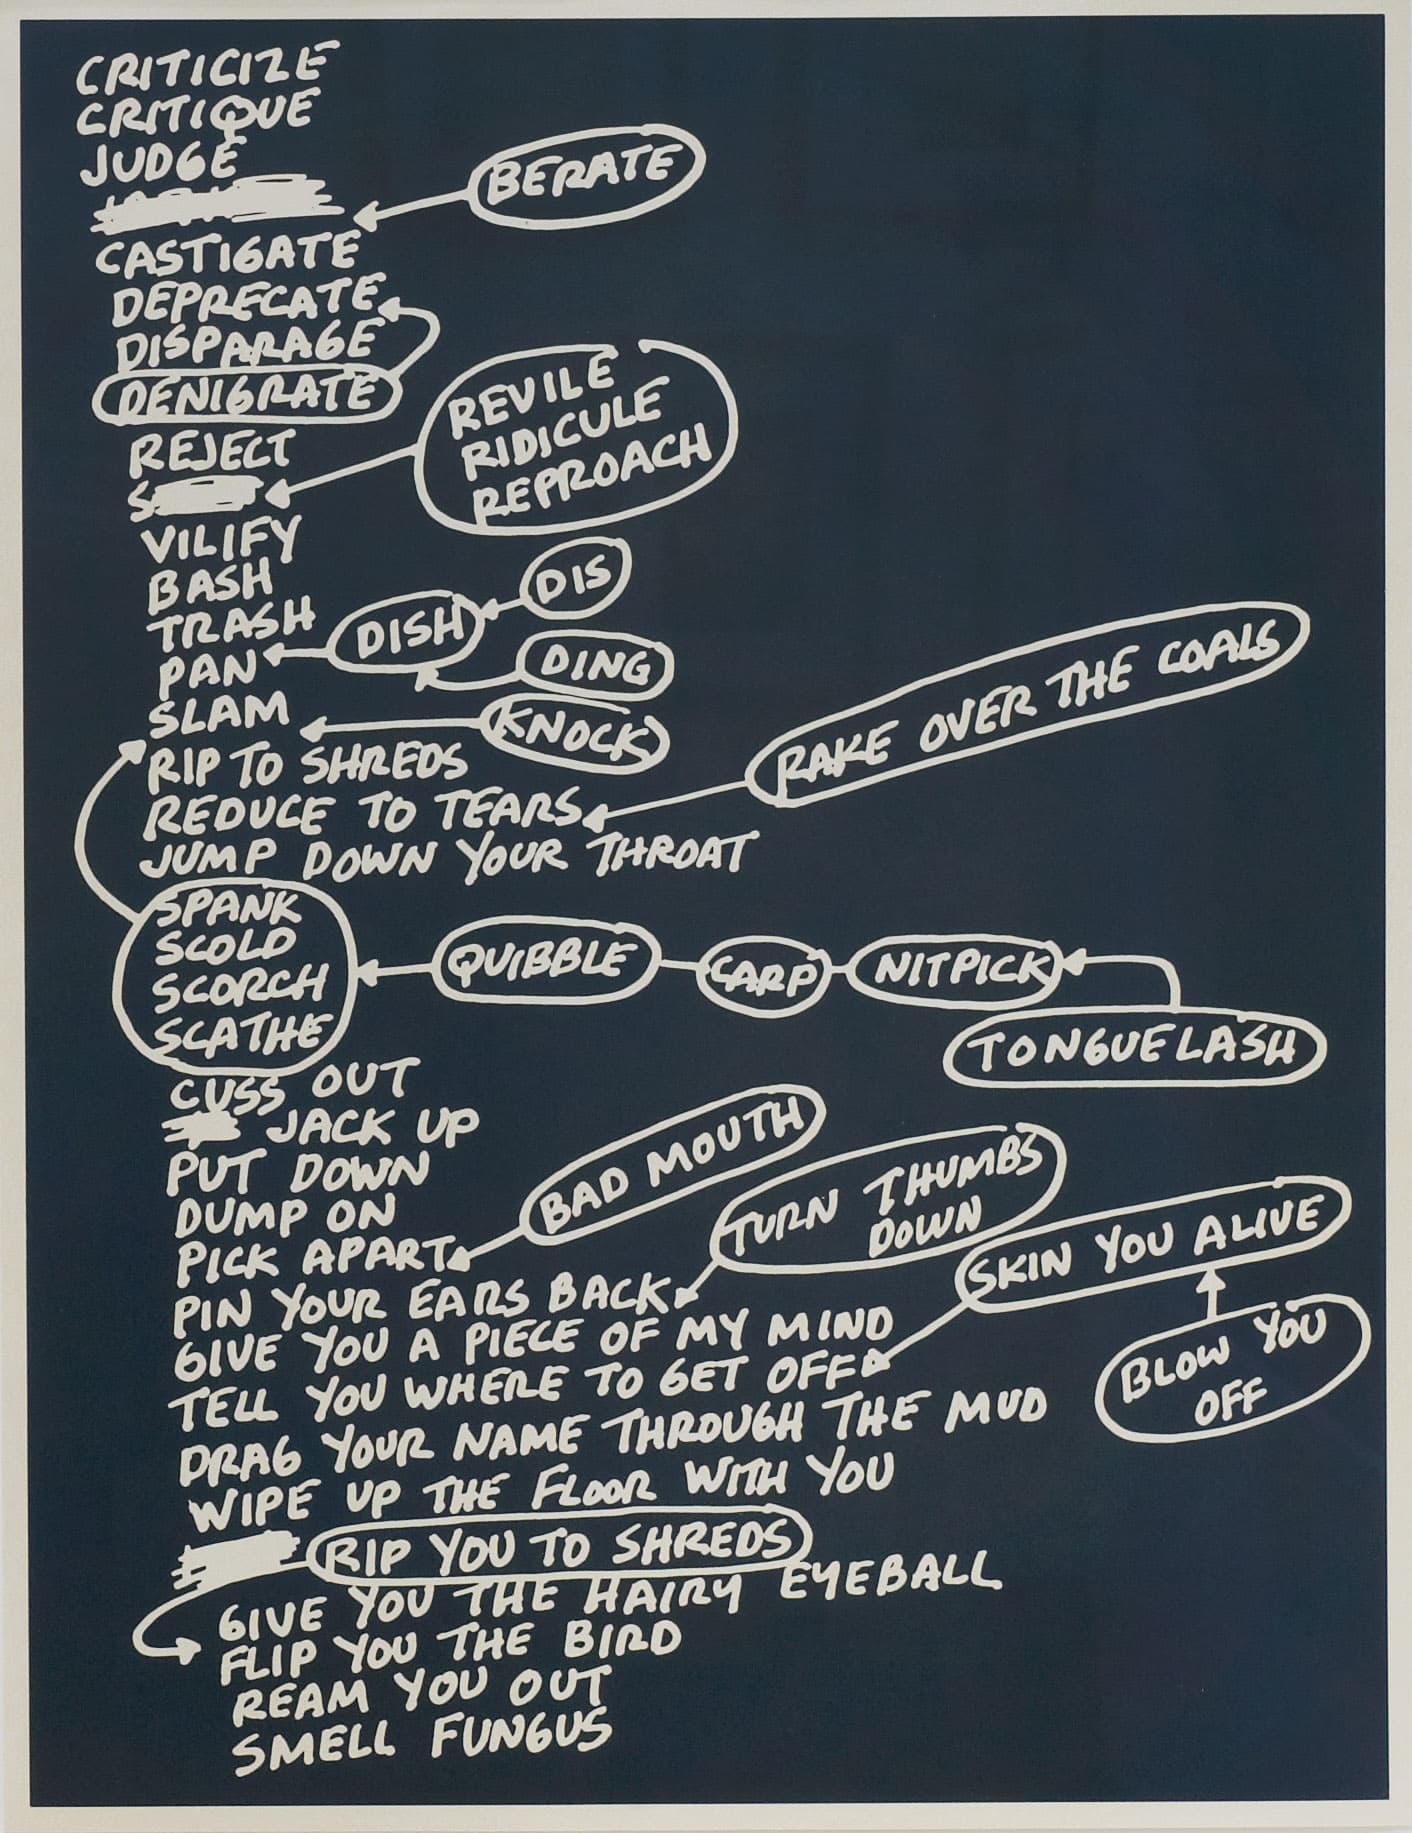 CRITICIZE
CRITIQUE
JUDGE
BERATE
CASTIGATE
DEPRECATE
DISPARAGE
DENIGRATE
REVILE
RIDICULE
REPROACH
REJECT
S
VILIFY
BASH
TRASH
DIS
DISH
PAN
DING
SLAM
KNOCK
RAKE OVER THE COALS
RIP TO SHREDS
REDUCE TO TEARS
JUMP DOWN YOUR THROAT
SPANK
SCOLD
SCORCH
SCATHE
QUIBBLE
CARP
NITPICK
TONGUELASH
CUSS OUT
JACK UP
PUT DOWN
DUMP ON
BAD MOUTH
PICK APART
TURN THUMBS
DOWN
PIN YOUR EARS BACK
SKIN YOU ALIVE
GIVE YOU A PIECE OF MY MIND
TELL YOU WHERE TO GET OFF
BLOW YOU
OFF
DRAG YOUR NAME THROUGH THE MUD
WIPE UP THE FLOOR WITH YOU
RIP YOU TO SHREDS
GIVE YOU THE HAIRY EYEBALL
FLIP YOU THE BIRD
REAM YOU OUT
SMELL FUNGUS